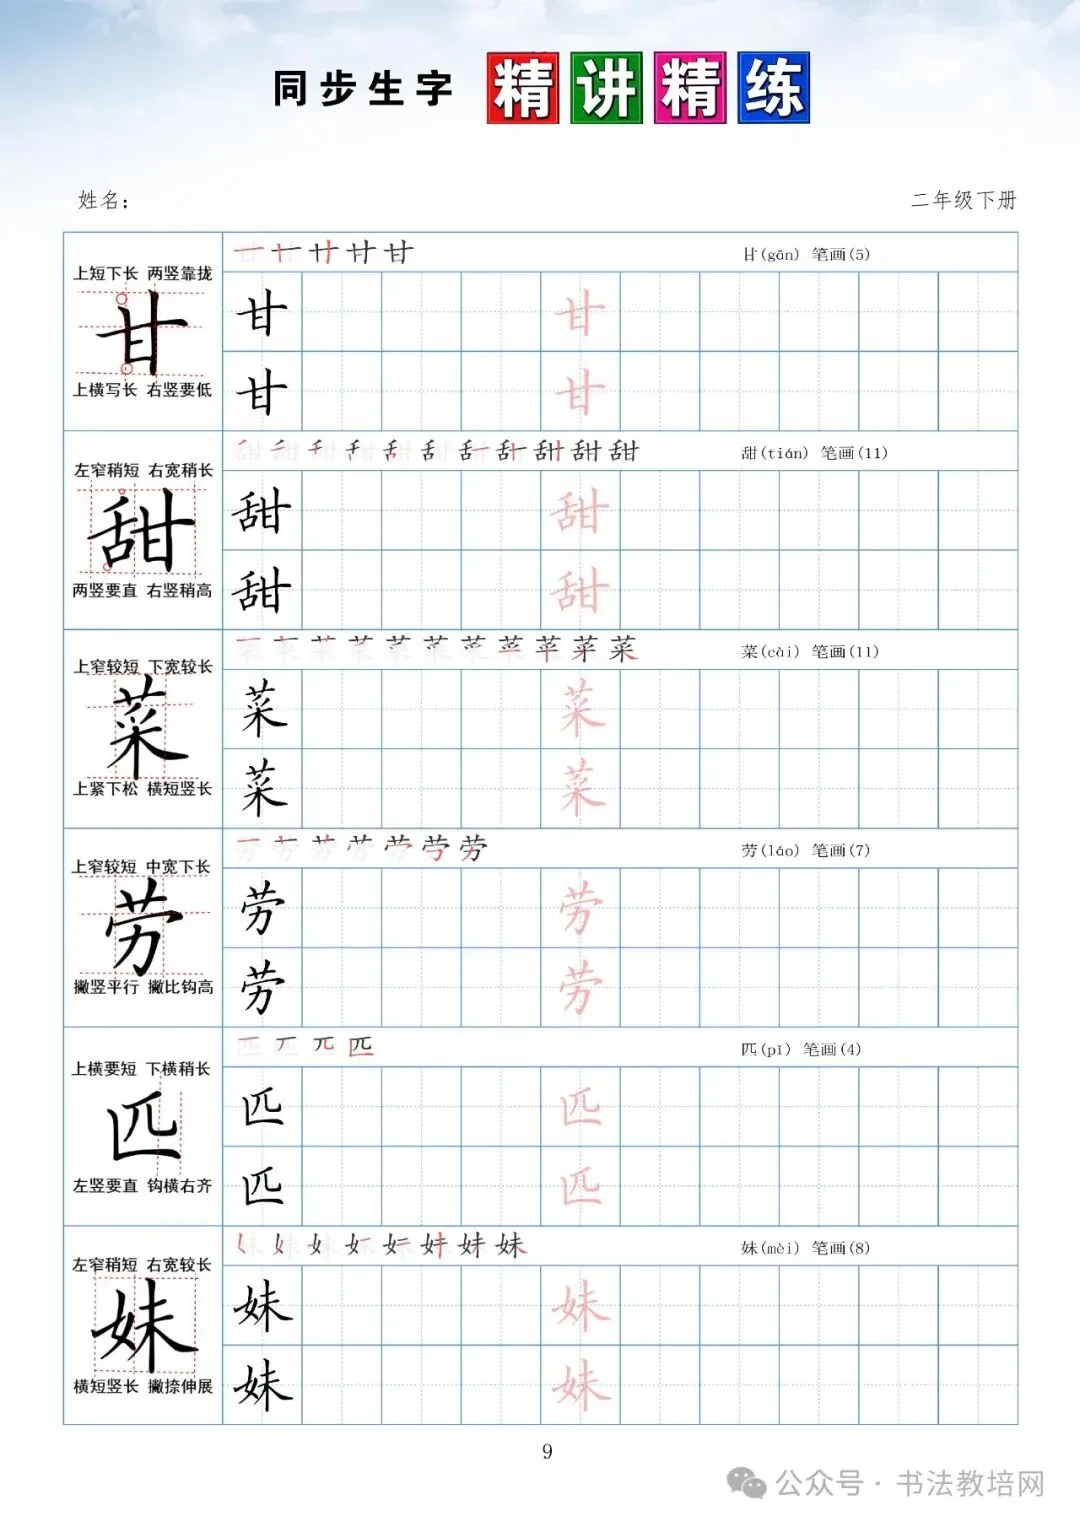 同步生字 精讲精练
姓名：
二年级下册
上短下长 两竖靠拢
甘
上横写长 右竖要低
甘(gān) 笔画(5)
甘 甘
甘 甘
左窄稍短 右宽稍长
甜
两竖要直 右竖稍高
甜(tián) 笔画(11)
甜 甜
甜 甜
上窄较短 下宽较长
菜
上紧下松 横短竖长
菜(cài) 笔画(11)
菜 菜
菜 菜
上窄较短 中宽下长
劳
撇竖平行 撇比钩高
劳(láo) 笔画(7)
劳 劳
劳 劳
上横要短 下横稍长
匹
左竖要直 钩横右齐
匹(pǐ) 笔画(4)
匹 匹
匹 匹
左窄稍短 右宽较长
妹
横短竖长 撇捺伸展
妹(mèi) 笔画(8)
妹 妹
妹 妹
9
公众号·书法教培网